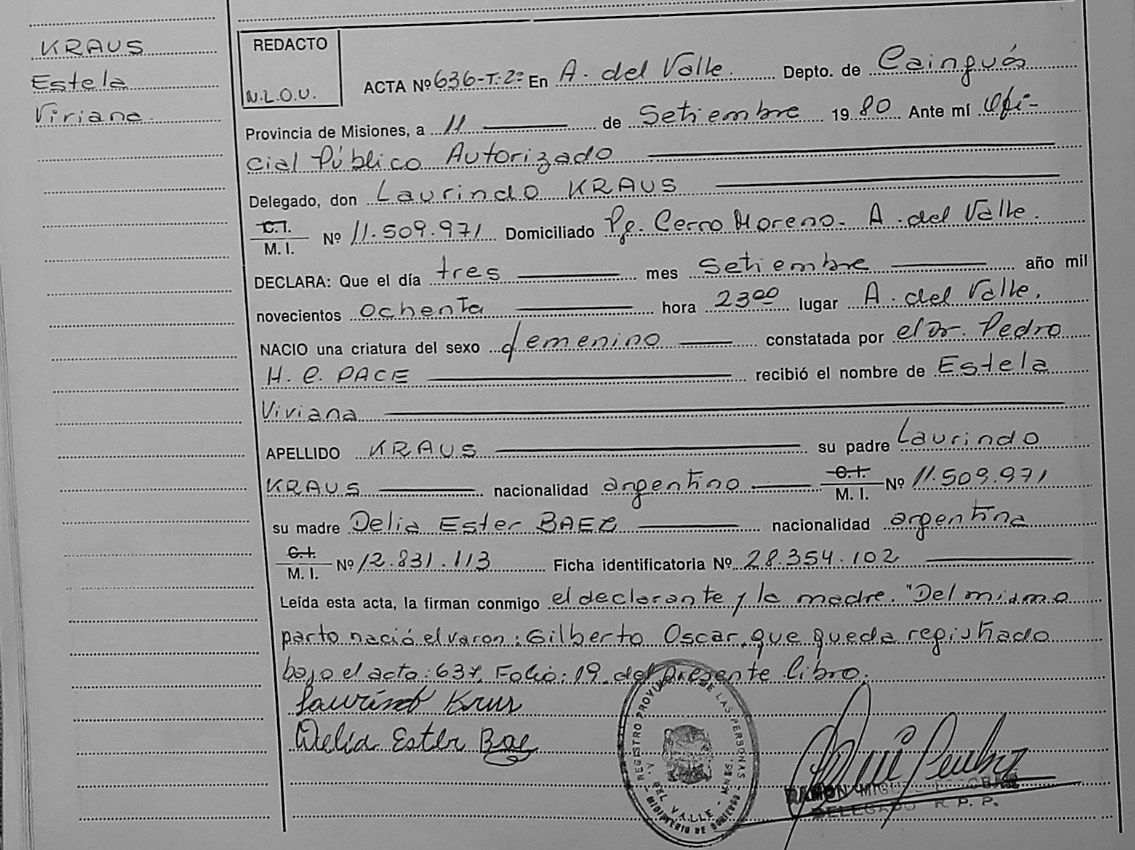 KRAUS
Estela
Viviana
REDACTO
N.L.O.U.
ACTA Nº 636-T.2º En A. del Valle. Depto. de Cainguás
Provincia de Misiones, a 11 de Setiembre 1980 Ante mí Ofi-
cial Público Autorizado
Delegado, don Laurindo KRAUS
C.I.
M. I. Nº 11.509.971 Domiciliado Pje. Cerro Moreno - A. del Valle.
DECLARA: Que el día tres mes Setiembre año mil
novecientos ochenta hora 23⁰⁰ lugar A. del Valle.
NACIO una criatura del sexo femenino constatada por el Dr. Pedro
H. C. PACE recibió el nombre de Estela
Viviana
APELLIDO KRAUS su padre Laurindo
KRAUS nacionalidad argentino C.I. M. I. Nº 11.509.971
su madre Delia Ester BAEZ nacionalidad argentina
C.I.
M. I. Nº 12.831.113 Ficha identificatoria Nº 28.354.102
Leída esta acta, la firman conmigo el declarante y la madre. "Del mismo
parto nació el varon: Gilberto Oscar, que queda registrado
bajo el acta: 637. Folio: 19. del presente libro.
Laurindo Kraus
Delia Ester Baez
REGISTRO PROVINCIAL DE LAS PERSONAS
A. DEL VALLE - MNES.
MINISTERIO DE GOBIERNO
RAMON MIGUEL
DELEGADO R. P. P.